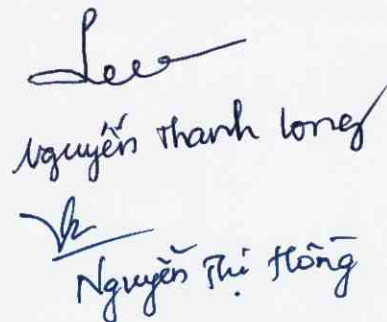 Nguyễn Thanh Long
Nguyễn Thị Hồng